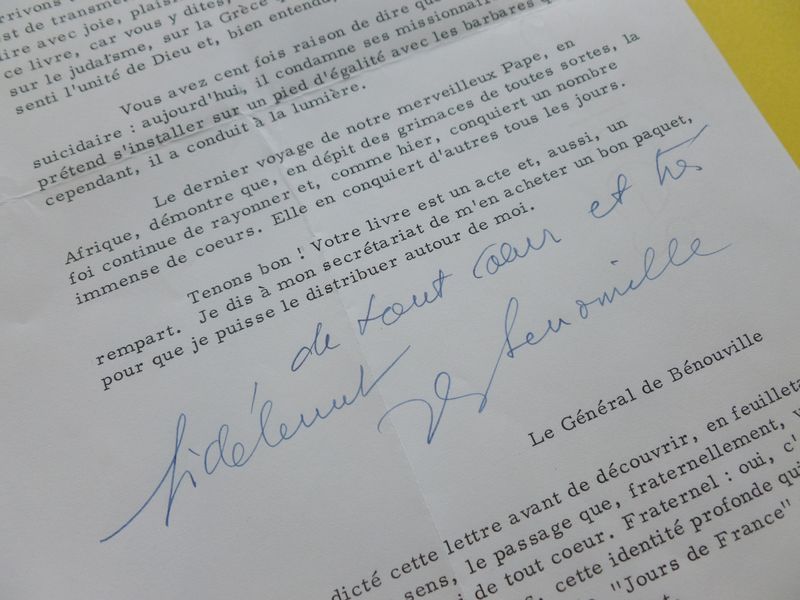 rrivons
est de transmet
dire avec joie, plais
ce livre, car vous y dites,
sur le judaïsme, sur la Grèce q
senti l'unité de Dieu et, bien entendu,
Vous avez cent fois raison de dire que
suicidaire : aujourd'hui, il condamne ses missionnai
prétend s'installer sur un pied d'égalité avec les barbares q
cependant, il a conduit à la lumière.
Le dernier voyage de notre merveilleux Pape, en
Afrique, démontre que, en dépit des grimaces de toutes sortes, la
foi continue de rayonner et, comme hier, conquiert un nombre
immense de coeurs. Elle en conquiert d'autres tous les jours.
Tenons bon ! Votre livre est un acte et, aussi, un
rempart. Je dis à mon secrétariat de m'en acheter un bon paquet,
pour que je puisse le distribuer autour de moi.
de tout coeur et très
fidèlement
Benouville
Le Général de Bénouville
dicté cette lettre avant de découvrir, en feuilleta
sens, le passage que, fraternellement, v
i de tout coeur. Fraternel : oui, c'
, cette identité profonde qui
"Jours de France"